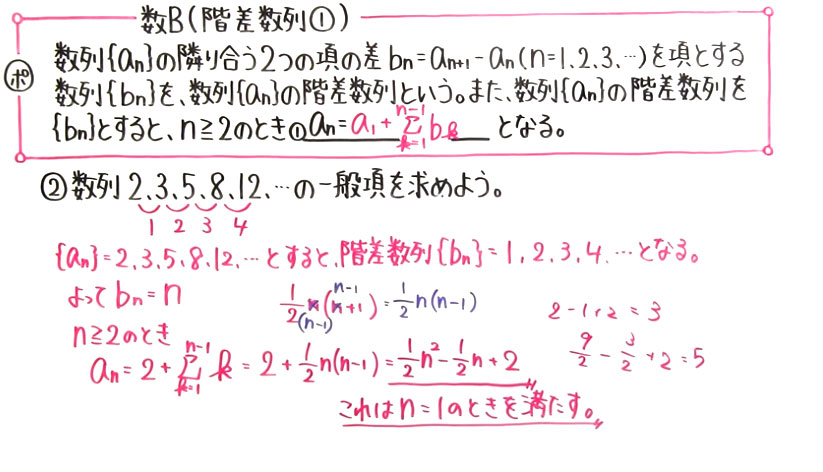 数B(階差数列①)
ポ
数列{an}の隣り合う2つの項の差bn=an+1-an(n=1.2.3.…)を項とする
数列{bn}を、数列{an}の階差数列という。また、数列{an}の階差数列を
{bn}とすると、n≧2のとき① an=a1+Σ[k=1, n-1]bk となる。
② 数列2.3.5.8.12.…の一般項を求めよう。
1 2 3 4
{an}=2.3.5.8.12.…とすると、階差数列{bn}=1.2.3.4.…となる。
よってbn=n
1/2 n(n+1)=1/2 n(n-1)
(n-1) n-1
n≧2のとき
2-1+2=3
9/2-3/2+2=5
an=2+Σ[k=1, n-1]k=2+1/2 n(n-1)=1/2 n²-1/2 n+2
これはn=1のときを満たす。